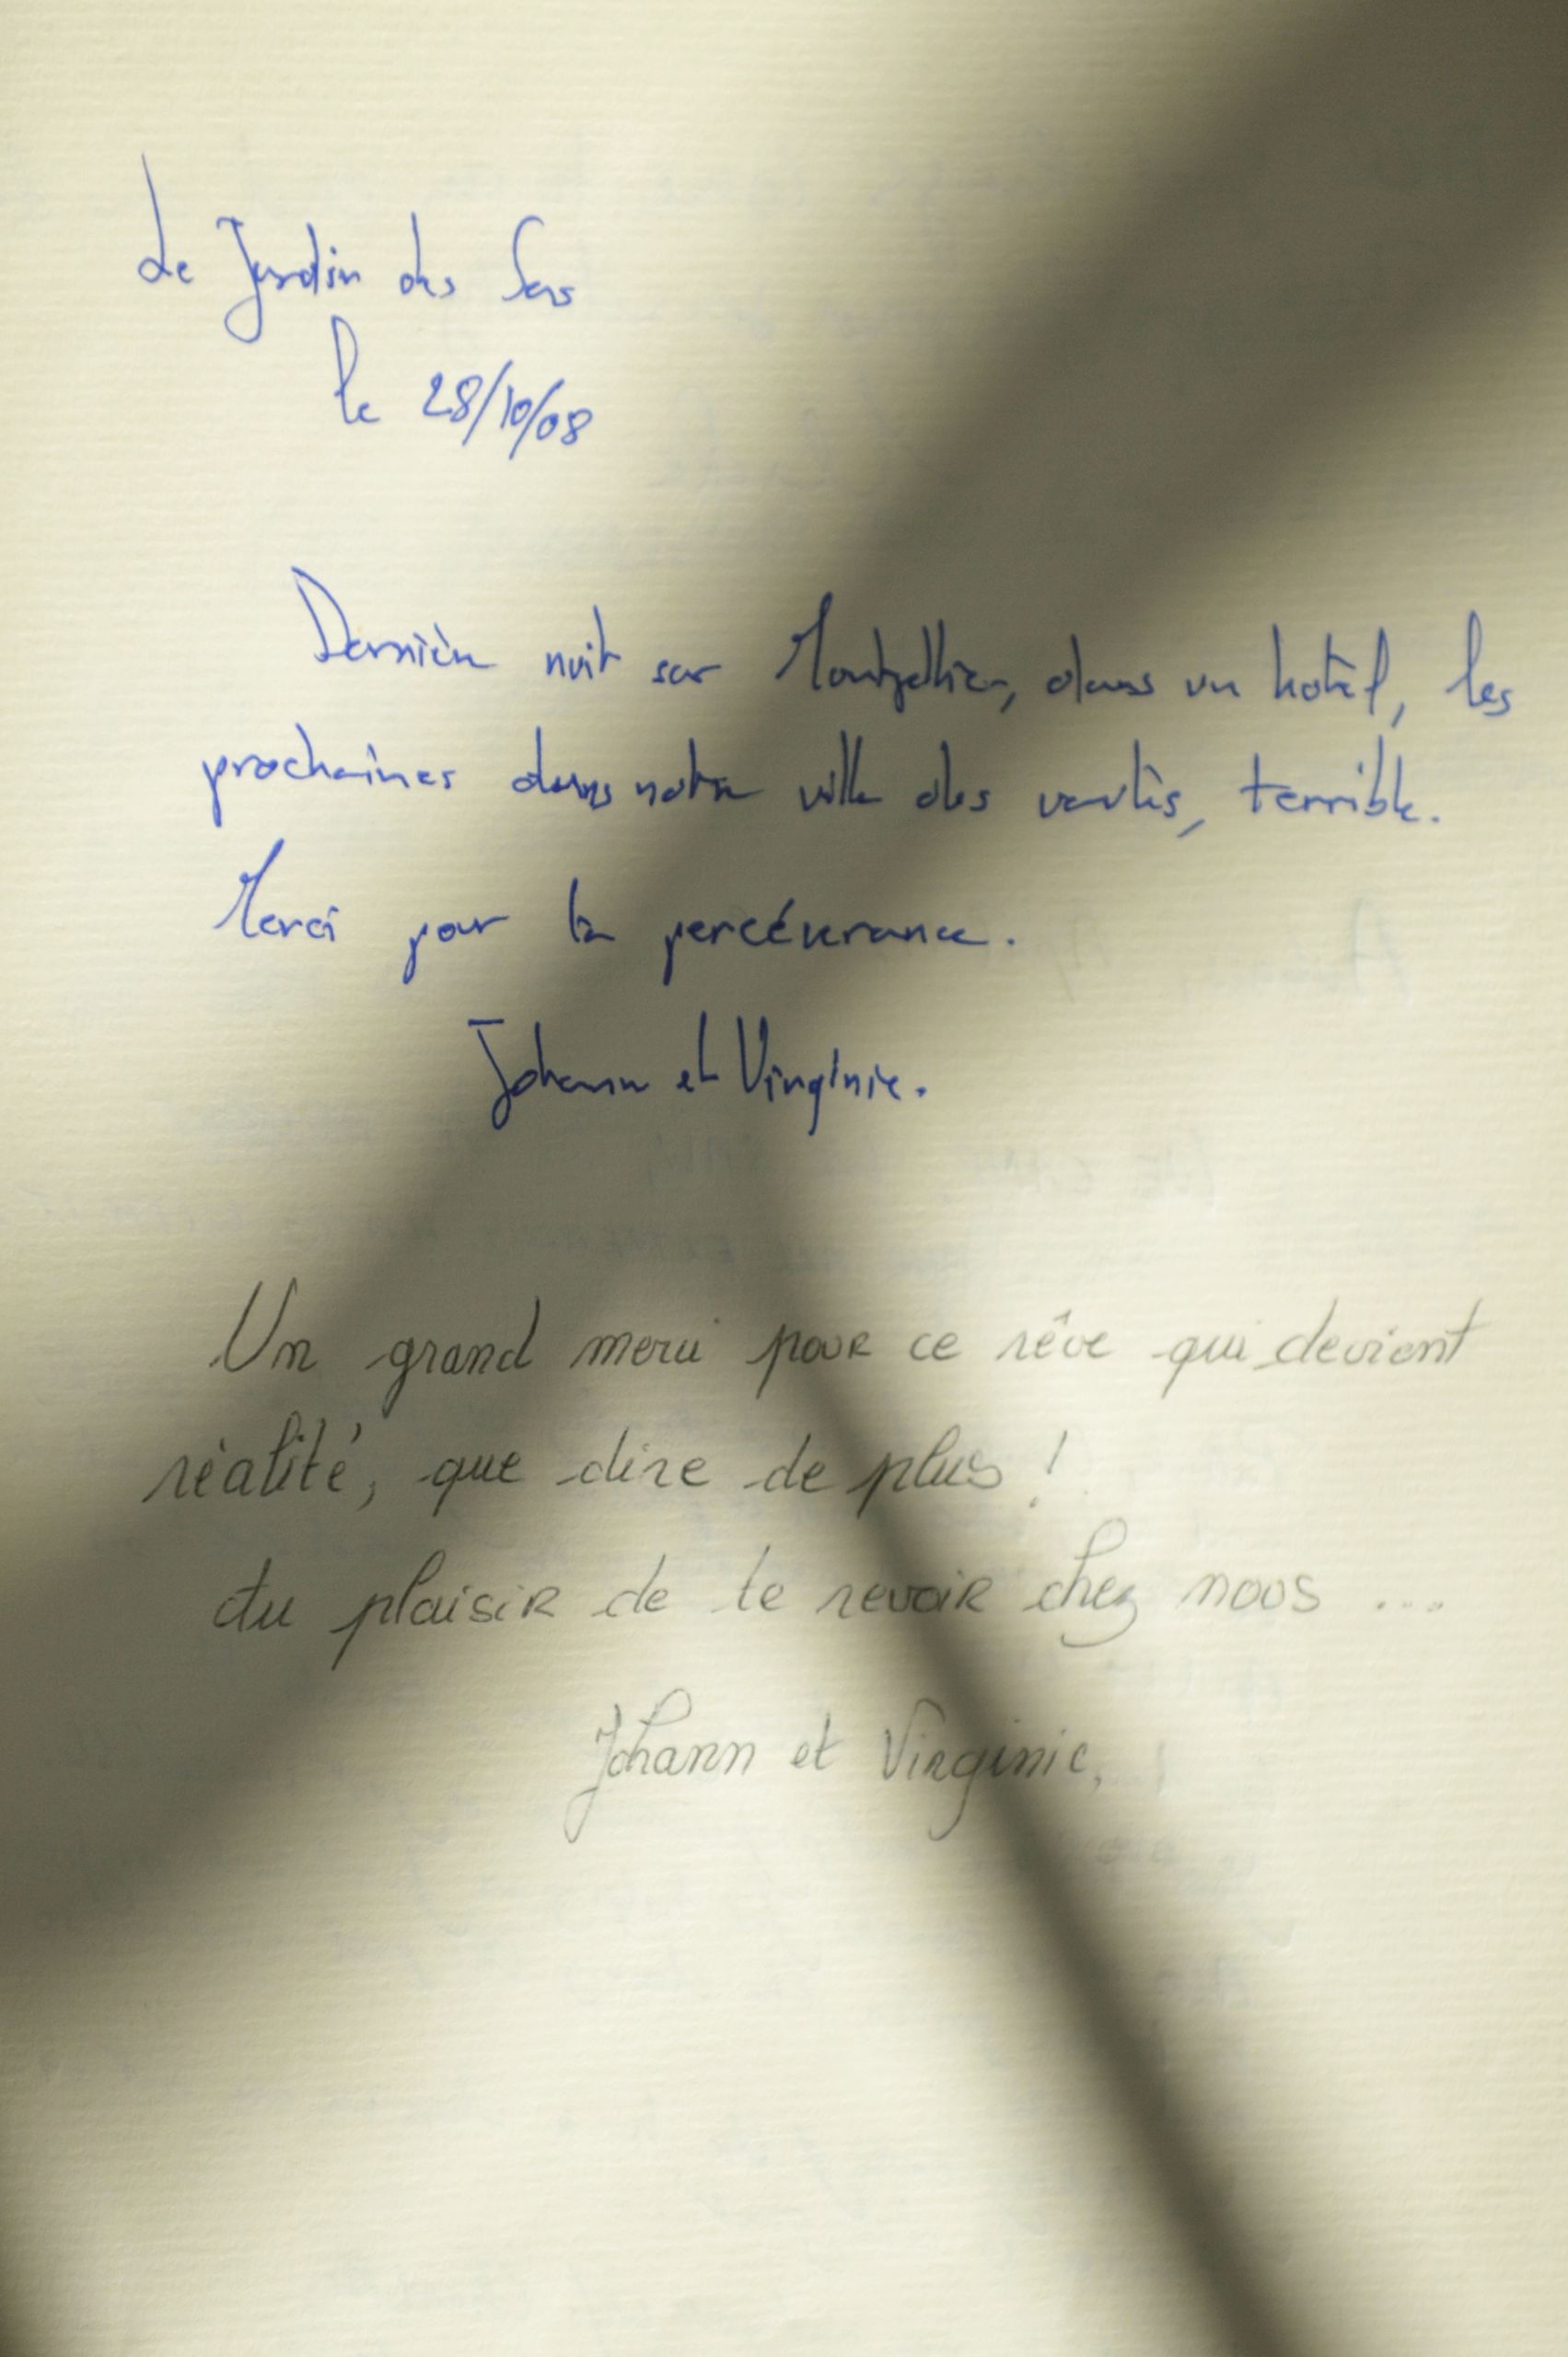 Le Jardin des Sens
le 28/10/08
Dernière nuit sur Montpellier, dans un hotel, les
prochaines dans notre ville des
terrible.
Merci pour la percéverance.
Johann et Virginie.
Un grand merci pour ce rêve qui devient
réalité, que dire de plus!
du plaisir de te revoir chez nous ...
Johann et Virginie,